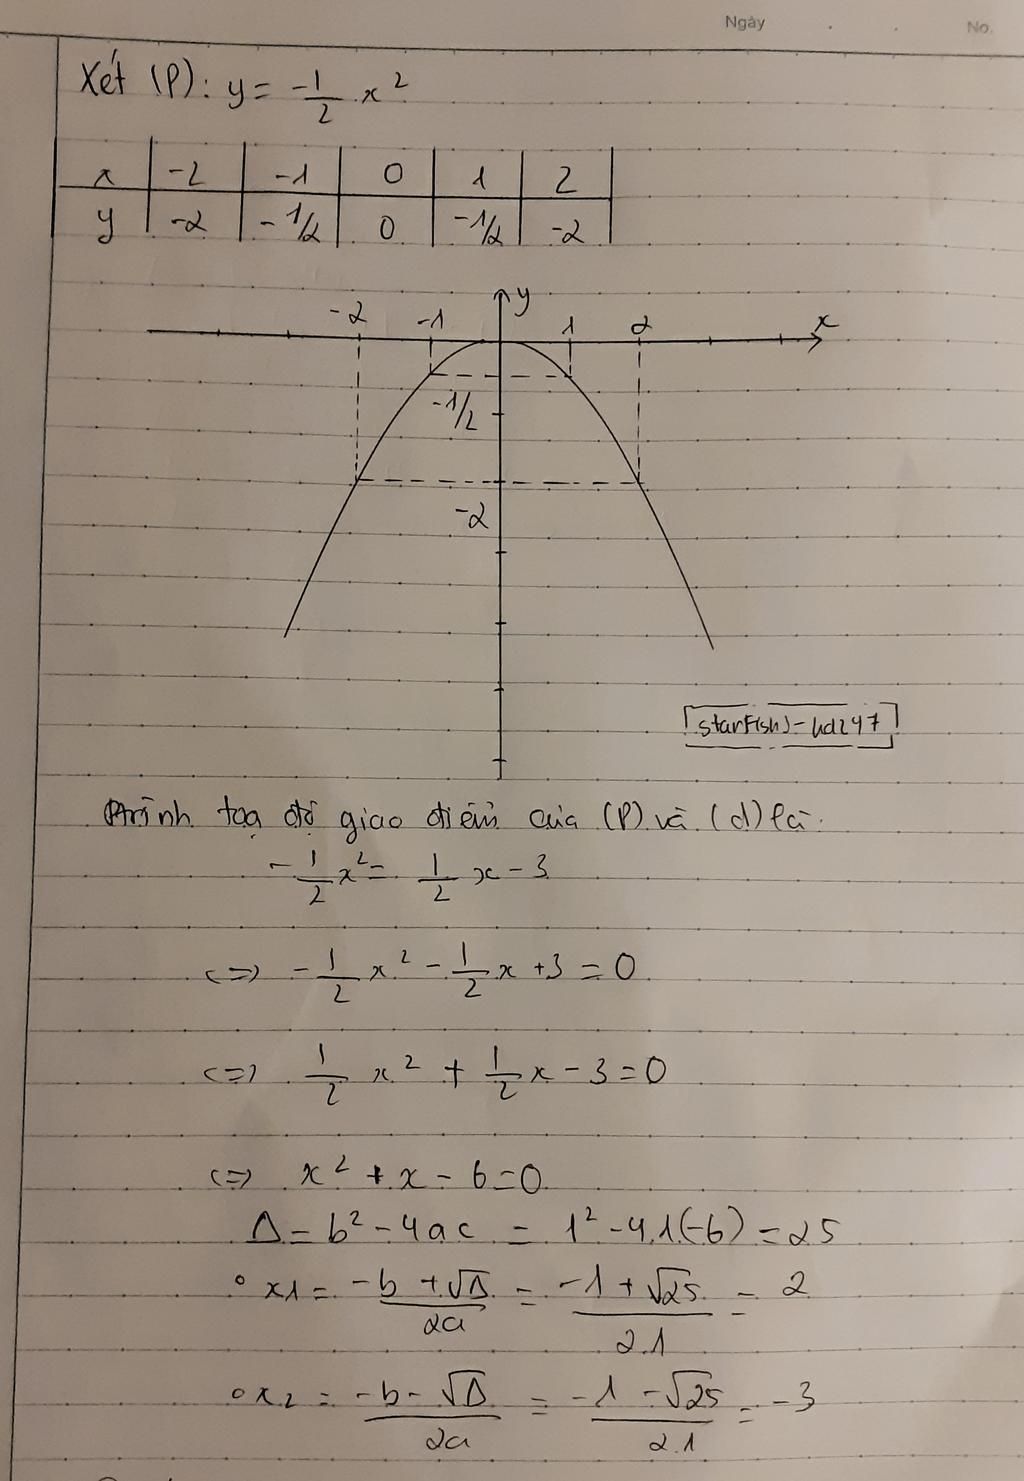 Ngày . . No.
Xét (P): y = -1/2 x²
x -2 -1 0 1 2
y -2 -1/2 0 -1/2 -2
y
-2 -1 1 2 x
-1/2
-2
[starfish]-hd247
trình toạ độ giao điểm của (P) và (d) là:
-1/2 x² = 1/2 x - 3
<=> -1/2 x² - 1/2 x + 3 = 0
<=> 1/2 x² + 1/2 x - 3 = 0
<=> x² + x - 6 = 0
Δ = b² - 4ac = 1² - 4.1(-6) = 25
° x1 = (-b + √Δ)/2a = (-1 + √25)/2.1 = 2
° x2 = (-b - √Δ)/2a = (-1 - √25)/2.1 = -3